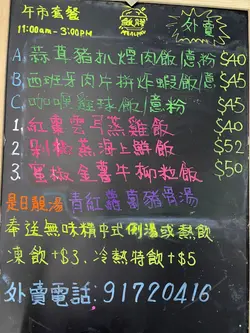 午市套餐
11:00am - 3:00PM
飯將
外賣
A. 蒜茸豬扒煙肉飯/意粉 $40
B. 西班牙肉片拼炸蝦飯/意 $45
C. 咖喱雞球飯/意粉 $45
1. 紅棗雲耳蒸雞飯 $40
2. 剁椒蒸海上鮮飯 $52
3. 蜜椒金薯牛柳粒飯 $50
是日靚湯 青紅蘿蔔豬骨湯
奉送無味精中式例湯或熱飲
凍飲+$3、冷熱特飲+$5
外賣電話:91720416